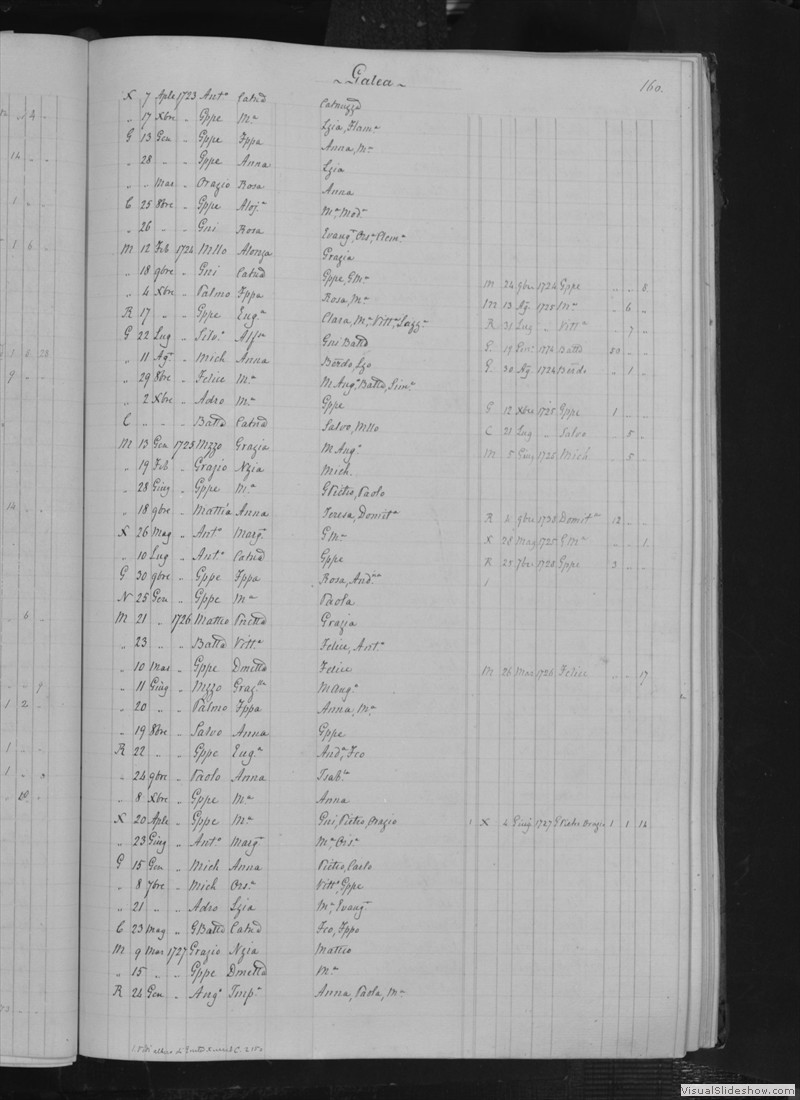 ~ Galea ~ 160.
X 7 Aple 1723 Antº Catud Catnuzza
„ 17 Xbre „ Gppe Mª Lzia, Flamª
G 13 Gen „ Gppe Fppa Anna, Mª
„ 28 „ „ Gppe Anna Lzia
„ „ Mar „ Orazio Rosa Anna
C 25 8bre „ Gppe Alojª Mª Modª
„ 26 „ „ Gni Rosa Evangª, Orsª, Clemª
M 12 Feb 1724 Mllo Alonza Grazia
„ 18 9bre „ Gni Catud Gppe, GMª M 24 9bre 1724 Gppe „ „ 8
„ 4 Xbre „ Palmo Fppa Rosa, Mª M 13 Agº 1725 Mª „ 6 „
R 17 „ „ Gppe Eugª Clara, Mª Vittª R 31 Lug „ Vittª „ 7 „
G 22 Lug „ Silvº Alfsa Gni Batta G 19 1774 Batta 50 „ „
„ 11 Agº „ Mich Anna Berdo, Lzo G 30 Agº 1724 Berdo „ 1 „
„ 29 8bre „ Felice Mª M Angª, Batta, Simª
„ 2 Xbre „ Adro Mª Gppe G 12 Xbre 1725 Gppe 1 „ „
C „ „ „ Batta Catud Salvo, Mllo C 21 Lug „ Salvo „ 5 „
M 13 Gen 1725 Mzzo Grazia M Angº M 5 Giug 1725 Mich „ 5 „
„ 19 Feb „ Grazio Nzia Mich
„ 28 Giug „ Gppe Mª GPietro, Paolo
„ 18 9bre „ Mattia Anna Teresa, Domitª R 4 9bre 1738 Domitª 12 „ „
X 26 Mag „ Antº Margª GMª X 28 Mag 1725 GMª „ „ 1
„ 10 Lug „ Antº Catud Gppe R 25 7bre 1728 Gppe 3 „ „
G 30 9bre „ Gppe Fppa Rosa, Andª
N 25 Gen „ Gppe Mª Paola
M 21 „ 1726 Matteo Prietta Grazia
„ 23 „ „ Batta Vittª Felice, Antª
„ 10 Mar „ Gppe Dmetta Felice M 26 Mar 1726 Felice „ „ 17
„ 11 Giug „ Mzzo Grazlla M Angº
„ 20 „ „ Palmo Fppa Anna, Mª
„ 19 8bre „ Salvo Anna Gppe
R 22 „ „ Gppe Eugª Andª, Fco
„ 24 9bre „ Paolo Anna Isabla
„ 8 Xbre „ Gppe Mª Anna
X 20 Aple „ Gppe Mª Gni, Pietro, Orazio 1 X 4 Giug 1727 GPietro Orazio 1 1 14
„ 23 Giug „ Antº Margª Mª, Orsª
G 15 Gen „ Mich Anna Pietro, Carlo
„ 8 7bre „ Mich Orsª Vittª, Gppe
„ 21 „ „ Adro Lzia Mª, Evangª
C 23 Mag „ GBatta Catud Fco, Fppo
M 9 Mar 1727 Grazio Nzia Matteo
„ 15 „ „ Gppe Dmetta Mª
R 24 Gen „ Angº Impª Anna, Paola, Mª
VisualSlideshow.com